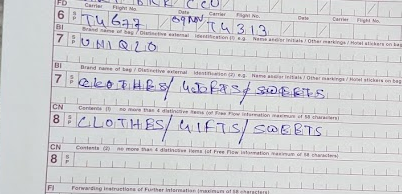 FD Carrier Flight No. Date Carrier Flight No. Date Carrier Flight No.
6 SP TG 677 TG 313
BI Brand name of bag / Distinctive external identification (1) e.g. Name and/or initials / Other markings / Hotel stickers on bag
7 SP UNIQLO
BI Brand name of bag / Distinctive external identification (2) e.g. Name and/or initials / Other markings / Hotel stickers on bag
7 SP CLOTHES/ GIFTS/ SWEETS
CN Contents (1) no more than 4 distinctive items (of Free Flow information maximum of 58 characters)
8 SP CLOTHES/ GIFTS/ SWEETS
CN Contents (2) no more than 4 distinctive items (of Free Flow information maximum of 58 characters)
8 SP
FI Forwarding Instructions of Further Information (maximum of 58 characters)